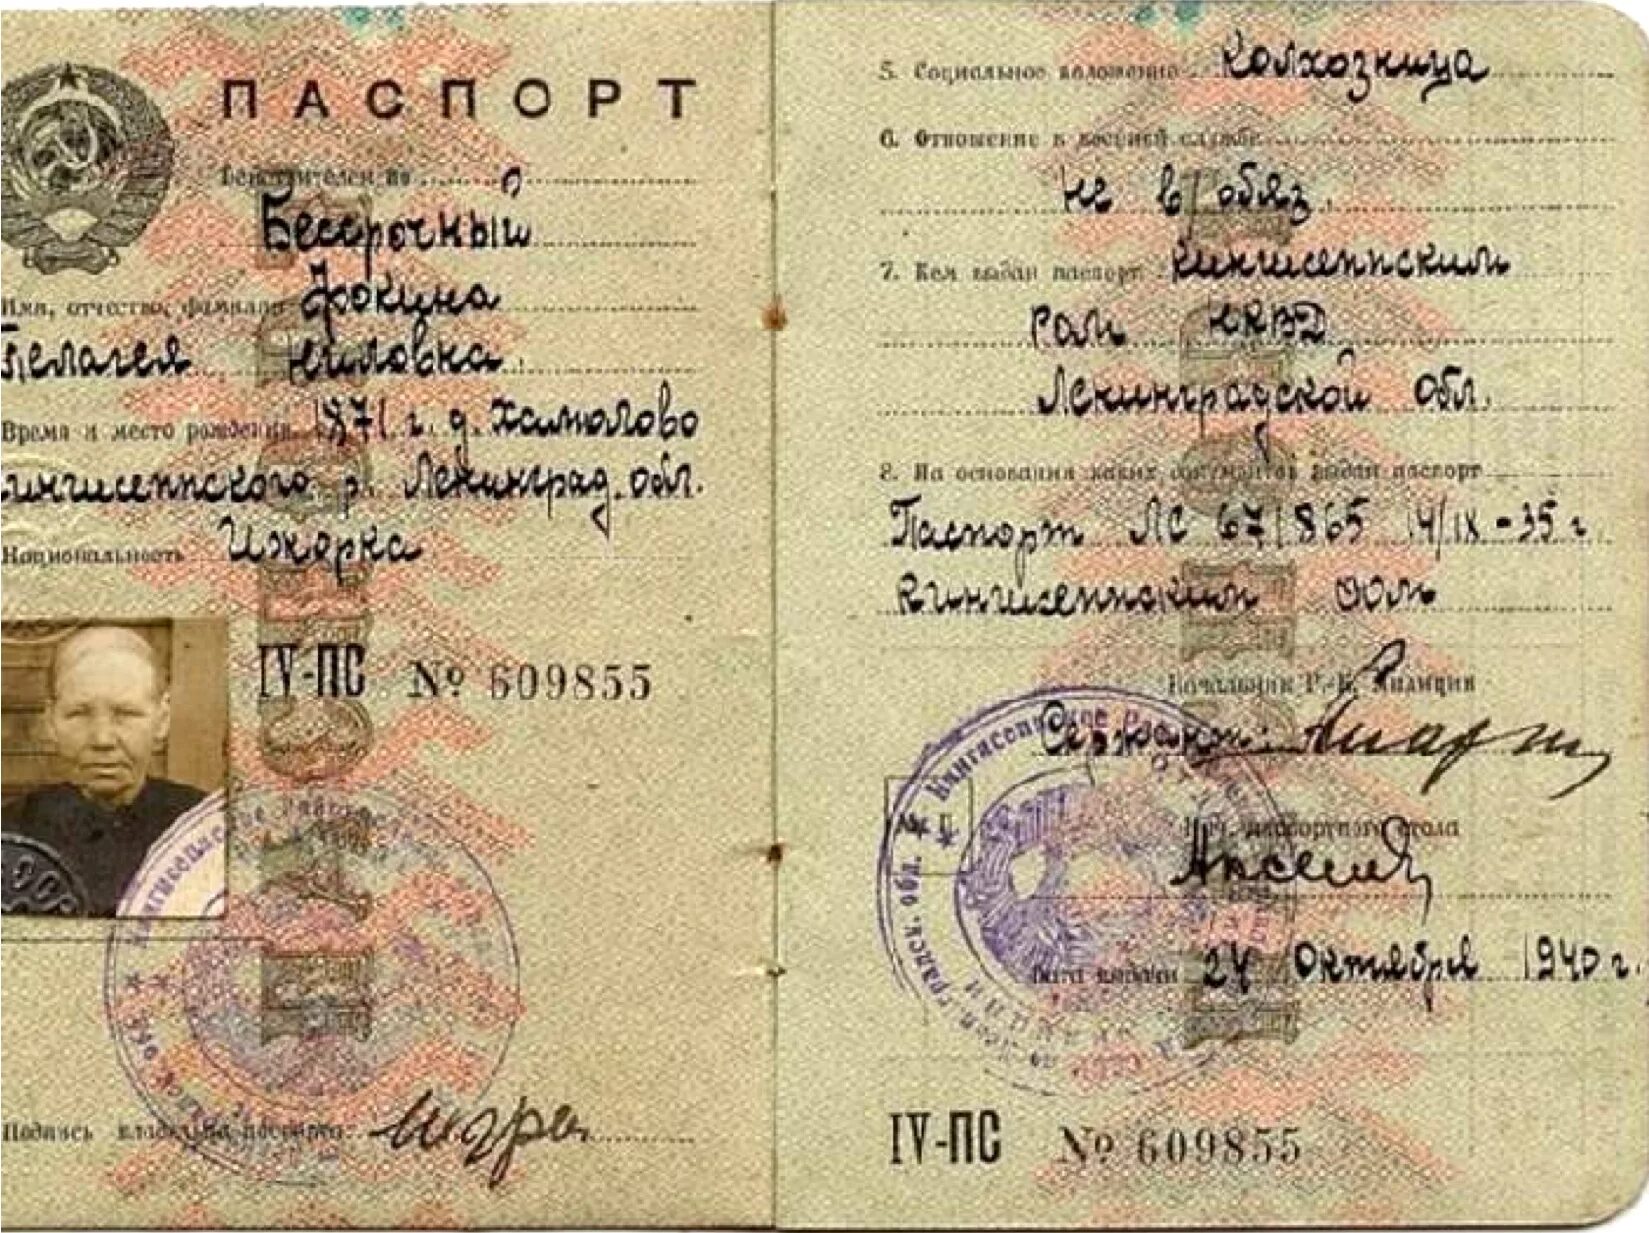 ПАСПОРТ
Действителен по
Бессрочный
Имя, отчество, фамилия Фокина
Пелагея Ниловка
Время и место рождения 1871 г. д. Хамолово
Кингисеппского р. Ленинград. обл.
Национальность Ижорка
IV-ПС № 609855
Подпись владельца паспорта:
5. Социальное положение Колхозница
6. Отношение к военной службе
не в/обяз.
7. Кем выдан паспорт Кингисеппским
Ром НКВД
Ленинградской обл.
8. На основании каких документов выдан паспорт
Паспорт ЛС 671865 14/IX-35 г
Кингисеппским
Начальник Р.-К. Милиции
Сержант
Нач. паспортного стола
Дата выдачи 24 Октября 1940 г.
IV-ПС № 609855